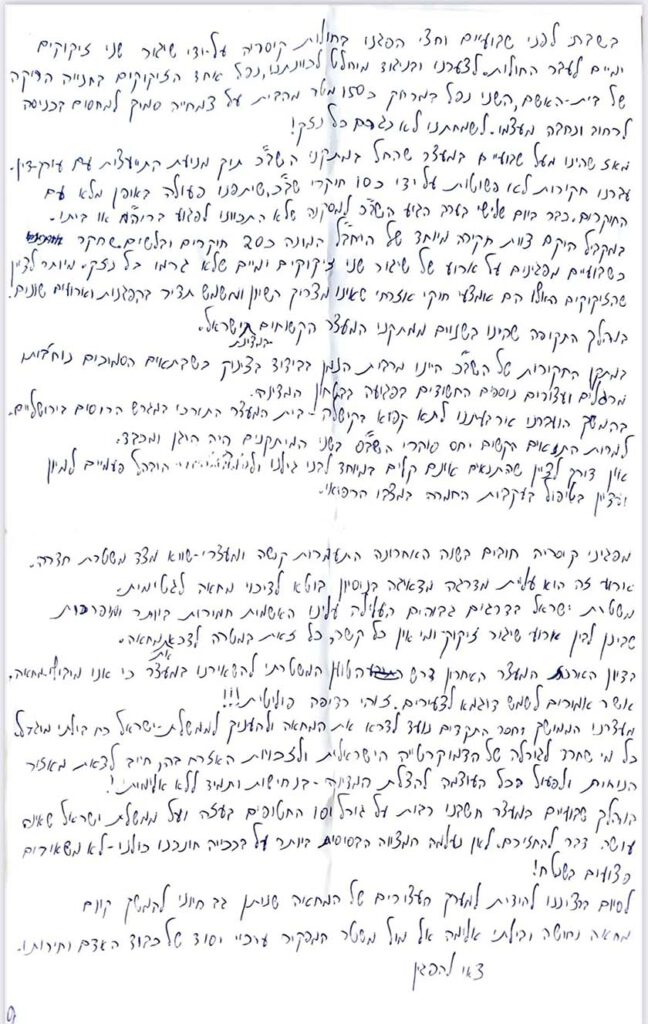 בשבת לפני שבועיים וחצי הפגנו בחולות קיסריה על-ידי שיגור שני זיקוקים
ימיים לעבר החולות. לצערנו ובניגוד מוחלט לכוונתנו, נפל אחד הזיקוקים בחנייה הריקה
של בית-האשם, השני נפל במרחק כ 150 מטר מהבית על צמחייה סמוך למחסום בכניסה
לרחוב וכבה מעצמו. לשמחתנו לא נגרם כל נזק!
מאז שהינו מעל שבועיים במעצר שהחל במתקני השב"כ תוך מניעת התייעצות עם עורך-דין.
עברנו חקירות לא פשוטות על ידי כ 10 חוקרי שב"כ, שיתפנו פעולה באופן מלא עם
החוקרים. כבר ביום שלישי בערב הגיע השב"כ למסקנה שלא התכוונו לפגוע ברוה"מ או ביתו.
במקביל הוקם צוות חקירה מיוחד של היחב"ל המונה כ 20 חוקרים ובלשים. שחקר
כשבועיים מפגינים על ארוע של שיגור שני זיקוקים ימיים שלא גרמו כל נזק. מיותר לציין
שהזיקוקים האלו הם אמצעי חוקי אזרחי שאינו מצריך רשיון ומשמש תדיר בהפגנות וארועים שונים.
במהלך התקופה שהינו בשניים ממתקני המעצר הקשוחים במדינת ישראל.
במתקן החקירות של השב"כ היינו מרבית הזמן בבידוד בצינוק כשבתאים הסמוכים נוח'בות
מרגלים ועצורים נוספים החשודים בפגיעה בבטחון המדינה.
בהמשך הועברנו ארבעתנו לתא קפוא בקישלה - בית המעצר התורכי במגרש הרוסים בירושלים.
למרות התנאים הקשים יחס סוהרי השב"ס בשני המיתקנים היה הוגן ומכבד.
אין צורך לציין שהתנאים אינם קלים במיוחד לבני גילנו הובהל פעמיים למיון
ועדיין בטיפול בעקבות החמרה במצבו הרפואי.
מפגיני קיסריה חווים בשנה האחרונה התעמרות קשה ומעצרי-שווא מצד משטרת חדרה.
אירוע זה הוא עליית מדרגה מדאיגה בניסיון בוטא לדיכוי מחאה לגטימית.
משטרת ישראל בדרגים גבוהים העלילה עלינו האשמות חמורות ביותר ומופרכות
שבינן לבין ארוע שיגור זיקוק ימי אין כל קשר, כל זאת במטרה לדכא את המחאה.
בדיון הארכת המעצר האחרון דרש הטוען המשטרתי להשאירנו במעצר כי אנו מובילי מחאה,
אשר אמורים לשמש דוגמא לצעירים. זוהי רדיפה פוליטית!!!
מעצרנו הממושך וחסר התקדים נועד לדכא את המחאה ולהעניק לממשלת-ישראל כח בילתי מוגבל.
כל מי שחרד לגורלה של הדמוקרטייה הישראלית ולזכויות האזרח בה, חייב לצאת מאזור
הנוחות ולפעול בכל העוצמה להצלת המדינה - בנחישות ותמיד ללא אלימות!
במהלך שבועיים במעצר חשבנו רבות על גורל 101 החטופים בעזה ועל ממשלת ישראל שאינה
עושה דבר להחזירם. לאן נעלמה המצווה הבסיסית ביותר על ברכייה חונכנו כולנו - לא משאירים
פצועים בשטח!
לסיום ברצוננו להודות למערך העצורים של המחאה שנותן גב חיוני להמשך קיום
מחאה נחושה ובילתי אלימה אל מול משטר המפקיר ערכיי יסוד של כבוד האדם וחירותו.
צאו להפגין